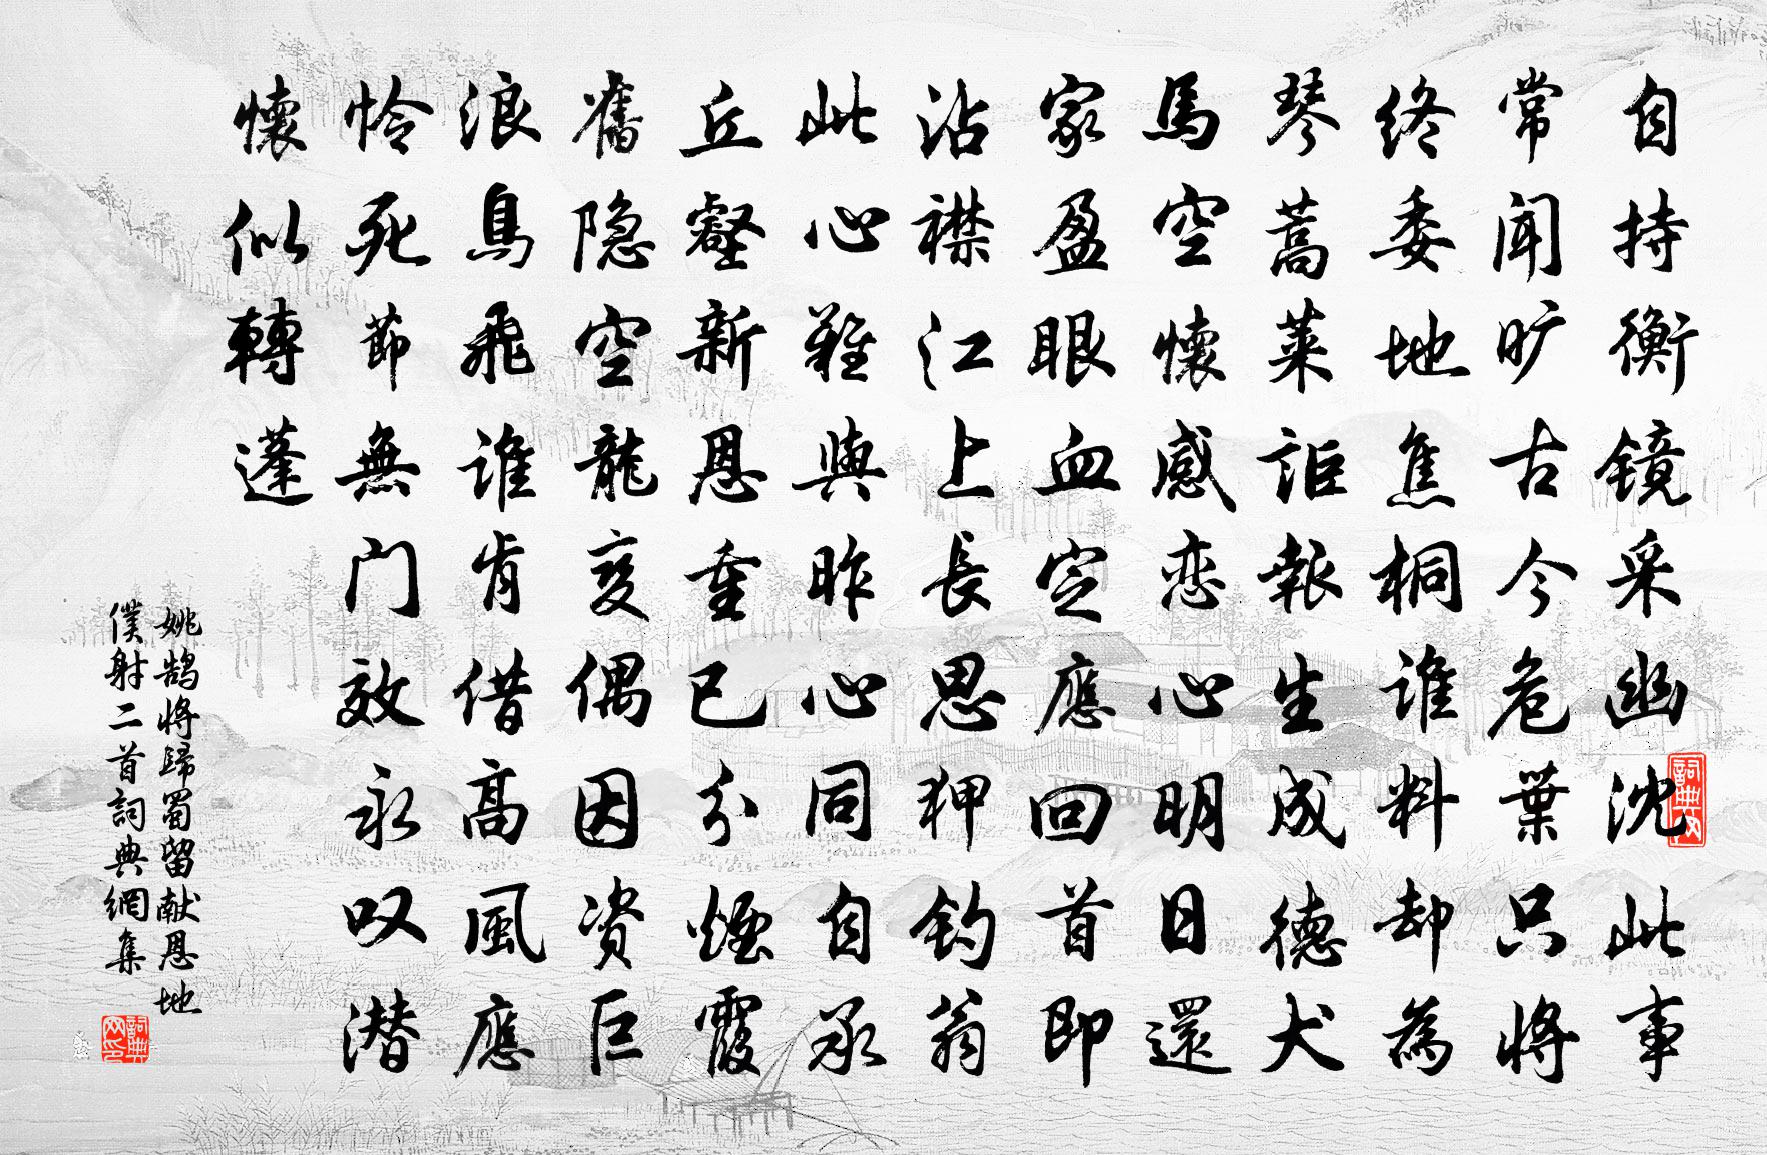 自持衡镜采幽沈此事
常闻旷古今危葉只将
终委地焦桐谁料却為
琴蒿莱讵報生成德犬
馬空懷感恋心明日還
家盈眼血定應回首即
沾襟江上長思狎钓翁
此心難與昨心同自承
丘壑新恩重已分煙霞
舊隐空龍变偶因资巨
浪鳥飛谁肯借高風應
怜死節無门效永叹潜
懷似轉蓬
姚鹄将歸蜀留献恩地
僕射二首詞典網集